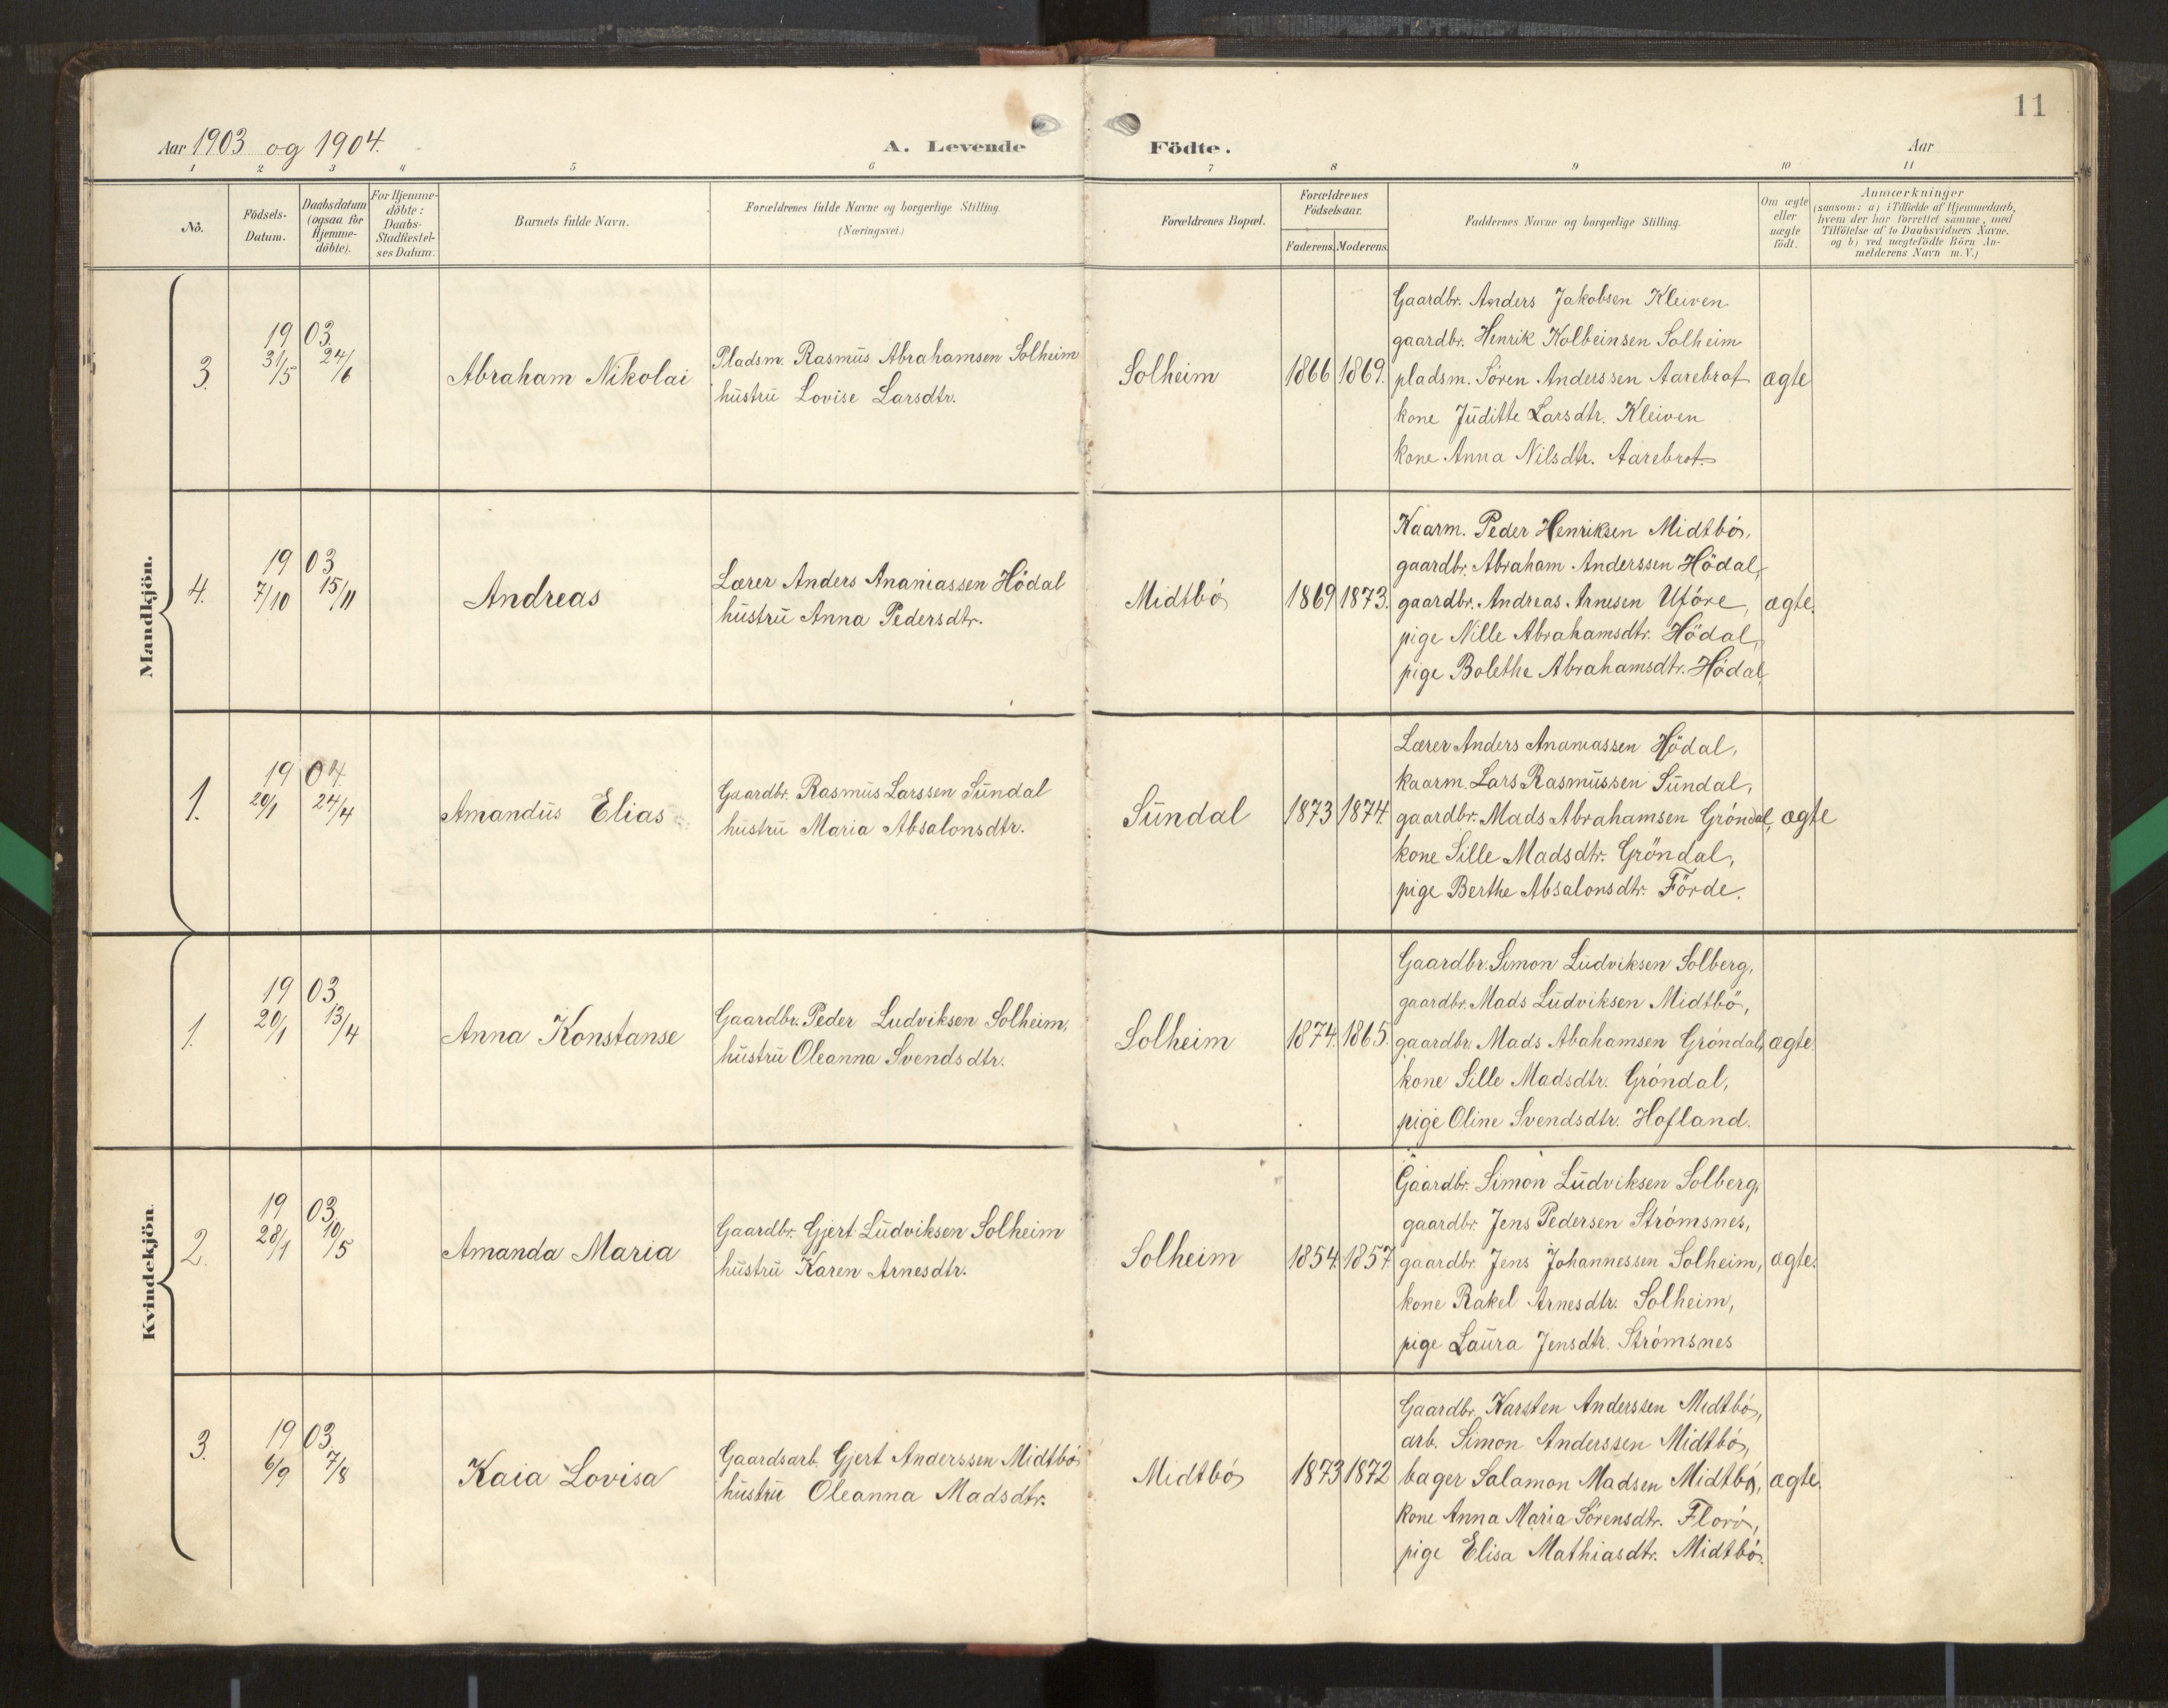 11
Aar 1903 og 1904.
A. Levende Födte.
Aar
1 2 3 4 5 6 7 8 9 10 11
No.
Födsels-
Datum.
Daabsdatum
(ogsaa for
Hjemme-
döbte).
For Hjemme-
döbte:
Daabs-
Stadfæstel-
ses Datum.
Barnets fulde Navn.
Forældrenes fulde Navne og borgerlige Stilling.
(Næringsvei.)
Forældrenes Bopæl.
Forældrenes
Födselsaar.
Faderens. Moderens.
Faddernes Navne og borgerlige Stilling.
Om ægte
eller
uægte
födt.
Anmærkninger
(saasom: a) i Tilfælde af Hjemmedaab,
hvem der har forrettet samme, med
Tilföielse af to Daabsvidners Navne.
og b) ved uægtefödte Börn An-
melderens Navn m.V.)
Mandkjön.
3.
19 03.
31/5 24/6
Abraham Nikolai
Pladsm. Rasmus Abrahamsen Solheim
hustru Lovise Larsdtr.
Solheim
1866 1869.
Gaardbr. Anders Jakobsen Kleiven
gaardbr. Henrik Kolbeinsen Solheim
pladsm. Sören Anderssen Aarebrot
kone Juditte Larsdtr. Kleiven
kone Anna Nilsdtr. Aarebrot.
ægte
4.
19 03
7/10 15/11
Andreas
Lærer Anders Ananiassen Hödal
hustru Anna Pedersdtr.
Midtbö
1869 1873.
Kaarm. Peder Henriksen Midtbö,
gaardbr. Abraham Anderssen Hödal,
gaardbr. Andreas Arnesen Utöre,
pige Nille Abrahamsdtr. Hödal,
pige Bolethe Abrahamsdtr. Hödal,
ægte.
1.
19 04.
20/1 24/4
Amandus Elias
Gaardbr. Rasmus Larssen Sundal
hustru Maria Absalonsdtr.
Sundal
1873 1874.
Lærer Anders Ananiassen Hödal,
kaarm. Lars Rasmussen Sundal,
gaardbr. Mads Abrahamsen Gröndal,
kone Sille Madsdtr. Gröndal,
pige Berthe Absalonsdtr. Förde.
ægte
Kvindekjön.
1.
19 03
20/1 13/4
Anna Konstanse
Gaardbr. Peder Ludviksen Solheim,
hustru Oleanna Svendsdtr.
Solheim
1874. 1865.
Gaardbr. Simon Ludviksen Solberg,
gaardbr. Mads Ludviksen Midtbö,
gaardbr. Mads Abahamsen Gröndal,
kone Sille Madsdtr. Gröndal,
pige Oline Svendsdtr. Hofland.
ægte.
2.
19 03
28/1 10/5
Amanda Maria
Gaardbr. Gjert Ludviksen Solheim
hustru Karen Arnesdtr.
Solheim
1854. 1857
Gaardbr. Simon Ludviksen Solberg,
gaardbr. Jens Pedersen Strömsnes,
gaardbr. Jens Johannessen Solheim,
kone Rakel Arnesdtr. Solheim,
pige Laura Jensdtr. Strömsnes
ægte.
3.
19 03.
6/9 7/8
Kaia Lovisa
Gaardsarb. Gjert Anderssen Midtbö
hustru Oleanna Madsdtr.
Midtbö
1873 1872
Gaardbr. Karsten Anderssen Midtbö,
arb. Simon Anderssen Midtbö,
bager Salamon Madsen Midtbö,
kone Anna Maria Sörensdtr. Florö,
pige Elisa Mathiasdtr. Midtbö.
ægte.